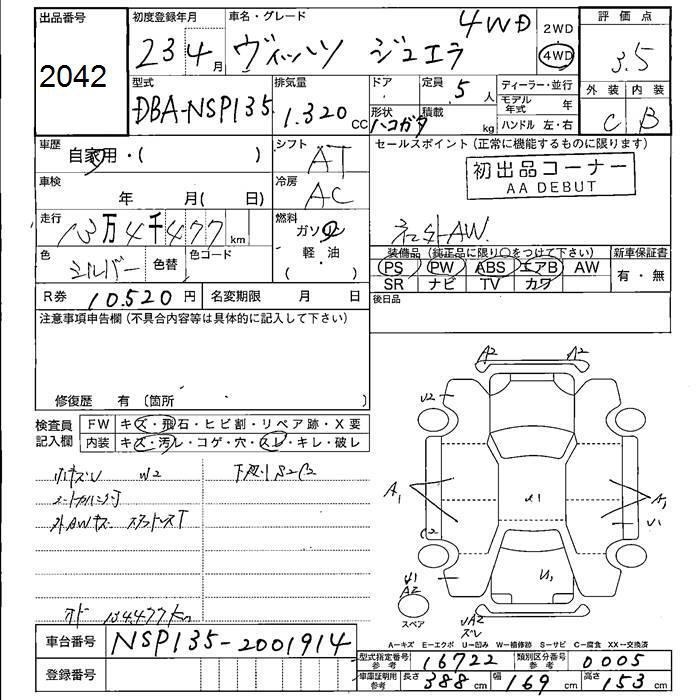 出品番号
2042
初度登録年月
23 4月
車名・グレード
ヴィッツ ジュエラ 4WD
2WD
4WD
評価点
3.5
外装 内装
C B
型式
DBA-NSP135
排気量
1.320 CC
ドア
形状
ハコガタ
定員
5人
積載
kg
ディーラー・並行
モデル年式 年
ハンドル 左・右
車歴
自家用・( )
シフト
AT
セールスポイント (正常に機能するものに限ります)
初出品コーナー
AA DEBUT
社外AW.
車検
年 月( 日)
冷房
AC
走行
13万4千477km
燃料
ガソリン
軽油
( ・ )
色
シルバー
色替
色コード
装備品 (純正品に限り○をつけて下さい)
PS PW ABS エアB AW
SR ナビ TV カワ
新車保証書
有・無
R券 10.520円
名変期限 月 日
後日品
注意事項申告欄 (不具合内容等は具体的に記入して下さい)
修復歴 有 〔箇所 〕
検査員記入欄
FW キズ・飛石・ヒビ割・リペア跡・X要
内装 キズ・汚レ・コゲ・穴・スレ・キレ・破レ
W2
外AWキズ スタットレスT
S2C2
134477km
A2 A2
U2
A1
U1
A1
U1
C2
U1
U1
A2
スペア
UA2
ズレ
A-キズ E-エクボ U-凹み W-補修跡 S-サビ C-腐食 XX-交換済
車台番号
NSP135-2001914
登録番号
型式指定番号参考 16722
類別区分番号参考 0005
車庫証明用参考 長さ 388cm 幅 169cm 高さ 153cm